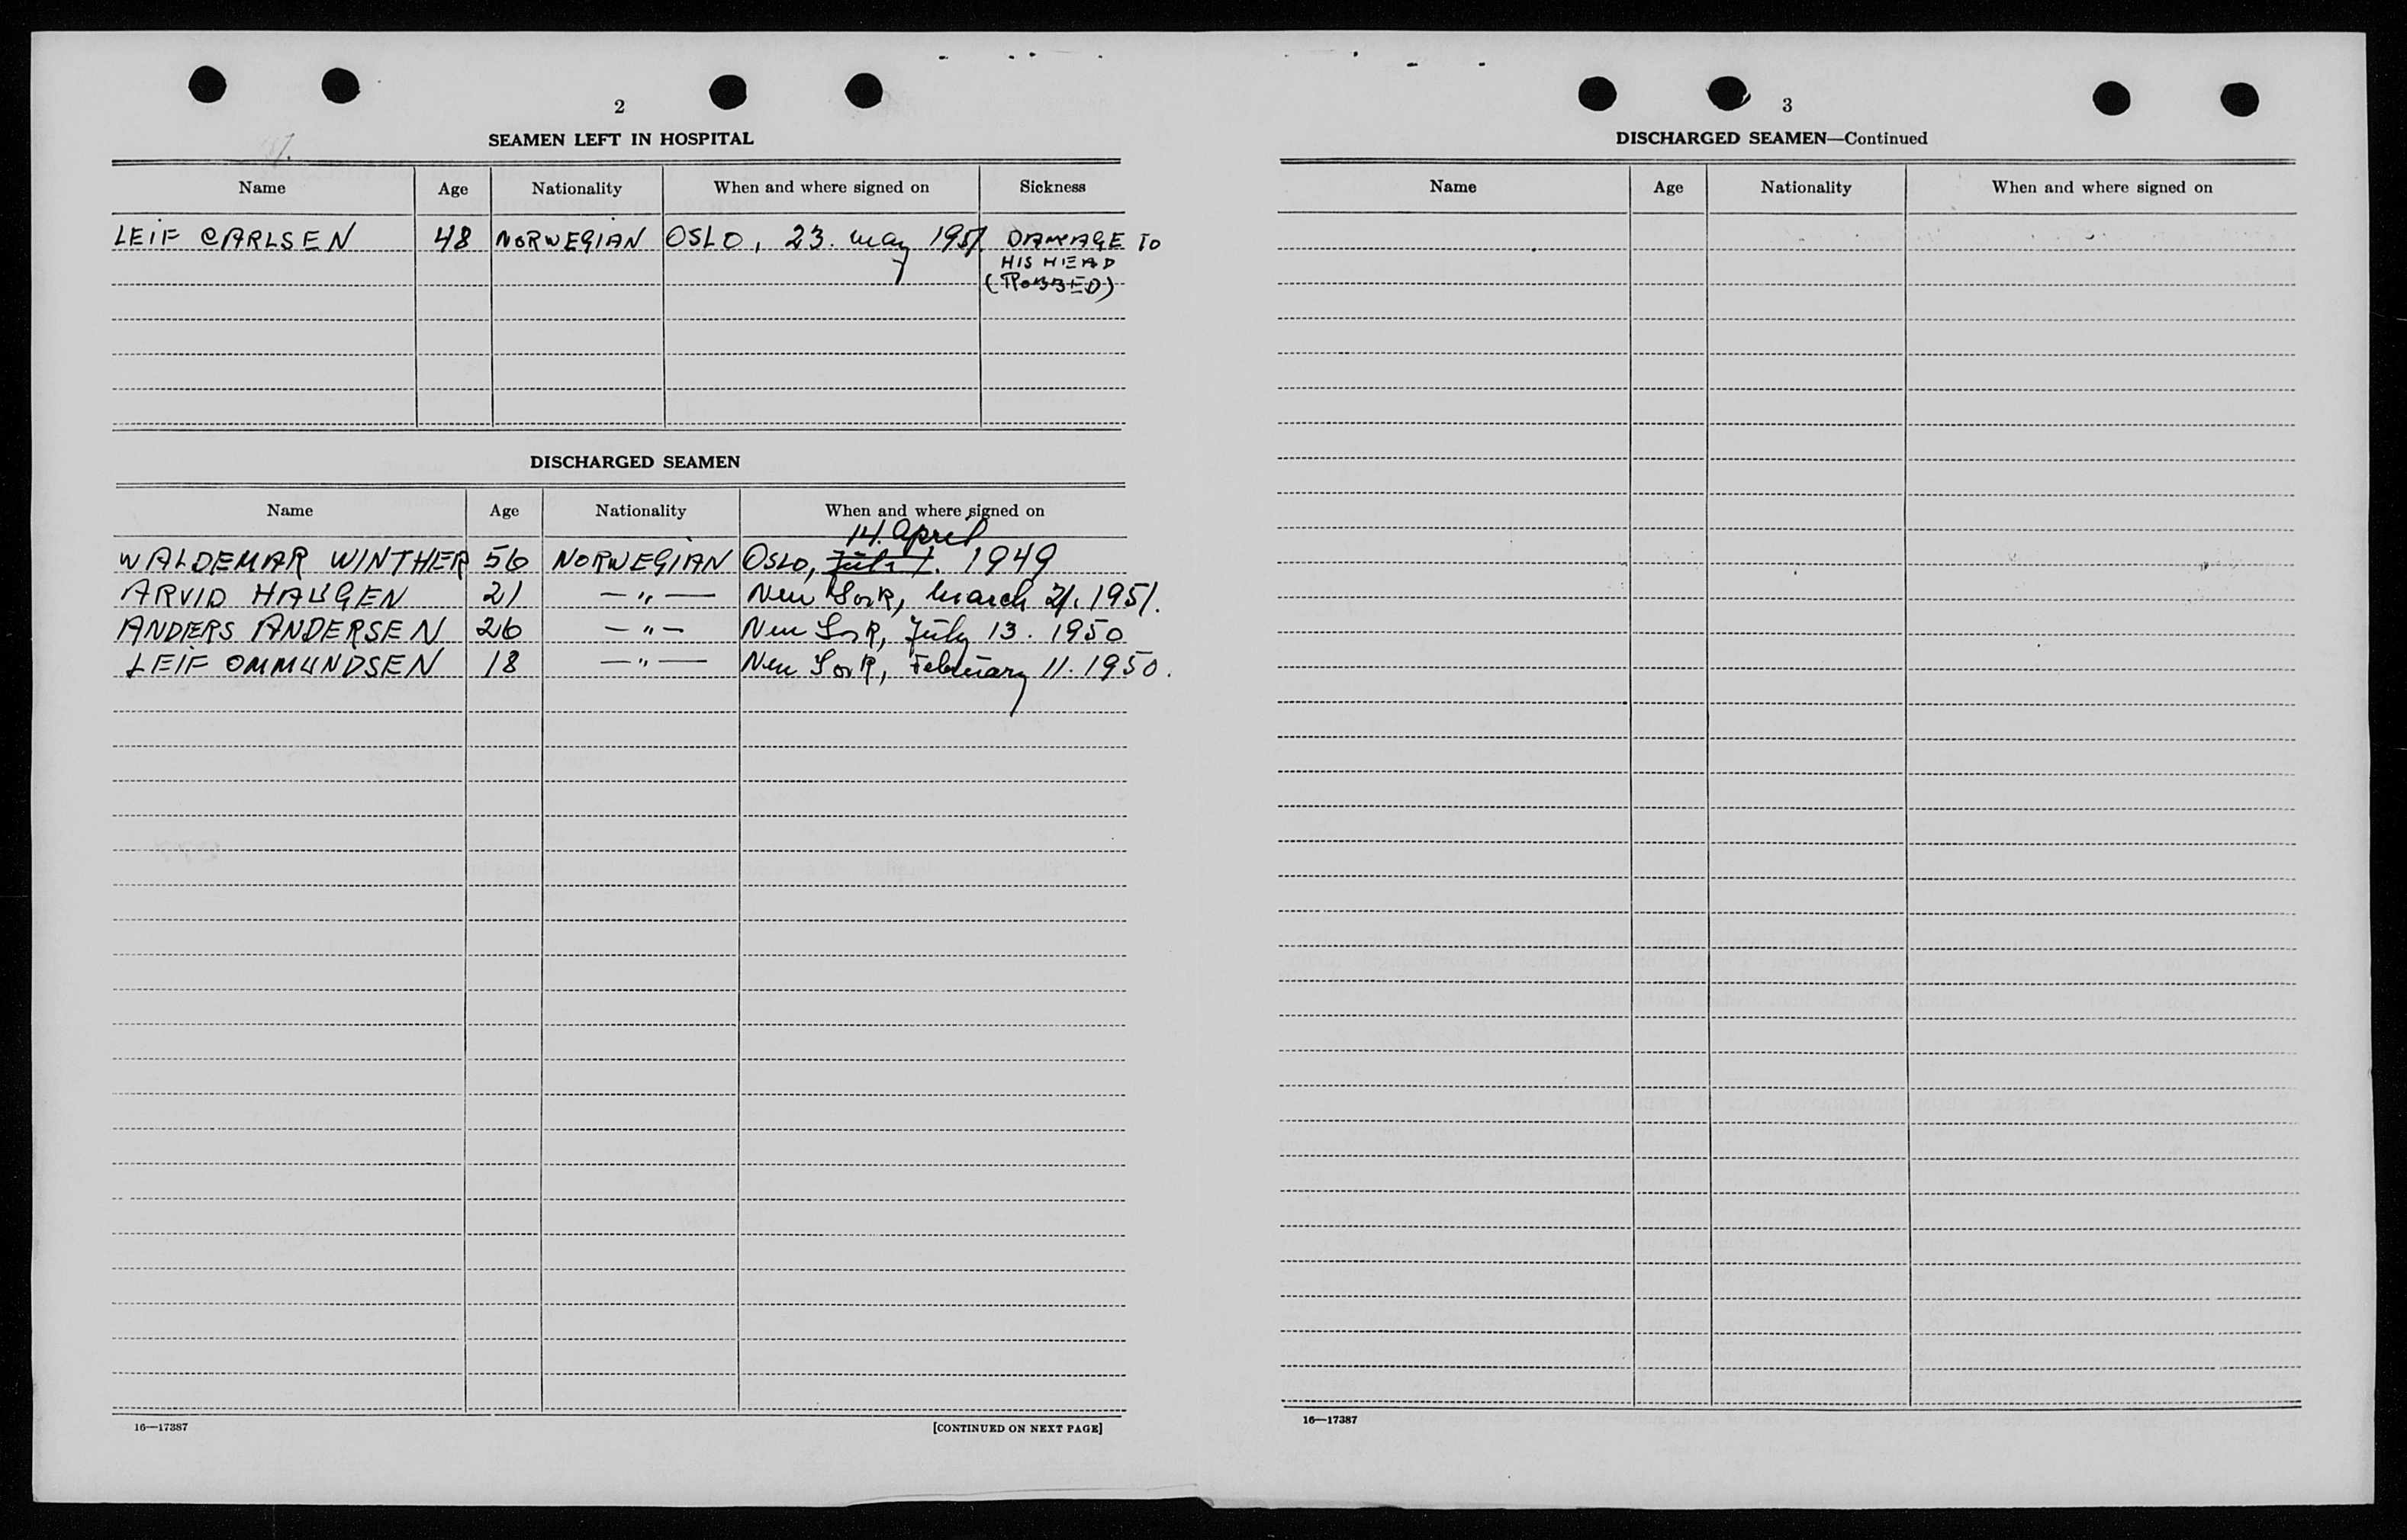 2
SEAMEN LEFT IN HOSPITAL
Name Age Nationality When and where signed on Sickness
LEIF CARLSEN 48 NORWEGIAN OSLO, 23. may 1951. DAMAGE TO
HIS HEAD
(ROBBED)
DISCHARGED SEAMEN
Name Age Nationality When and where signed on
14. April
WALDEMAR WINTHER 56 NORWEGIAN OSLO, 1949
ARVID HAUGEN 21 —"— New York, March 21. 1951.
ANDERS ANDERSEN 26 —"— New York, July 13. 1950
LEIF OMMUNDSEN 18 —"— New York, February 11. 1950.
16—17387 [CONTINUED ON NEXT PAGE]
3
DISCHARGED SEAMEN—Continued
Name Age Nationality When and where signed on
16—17387